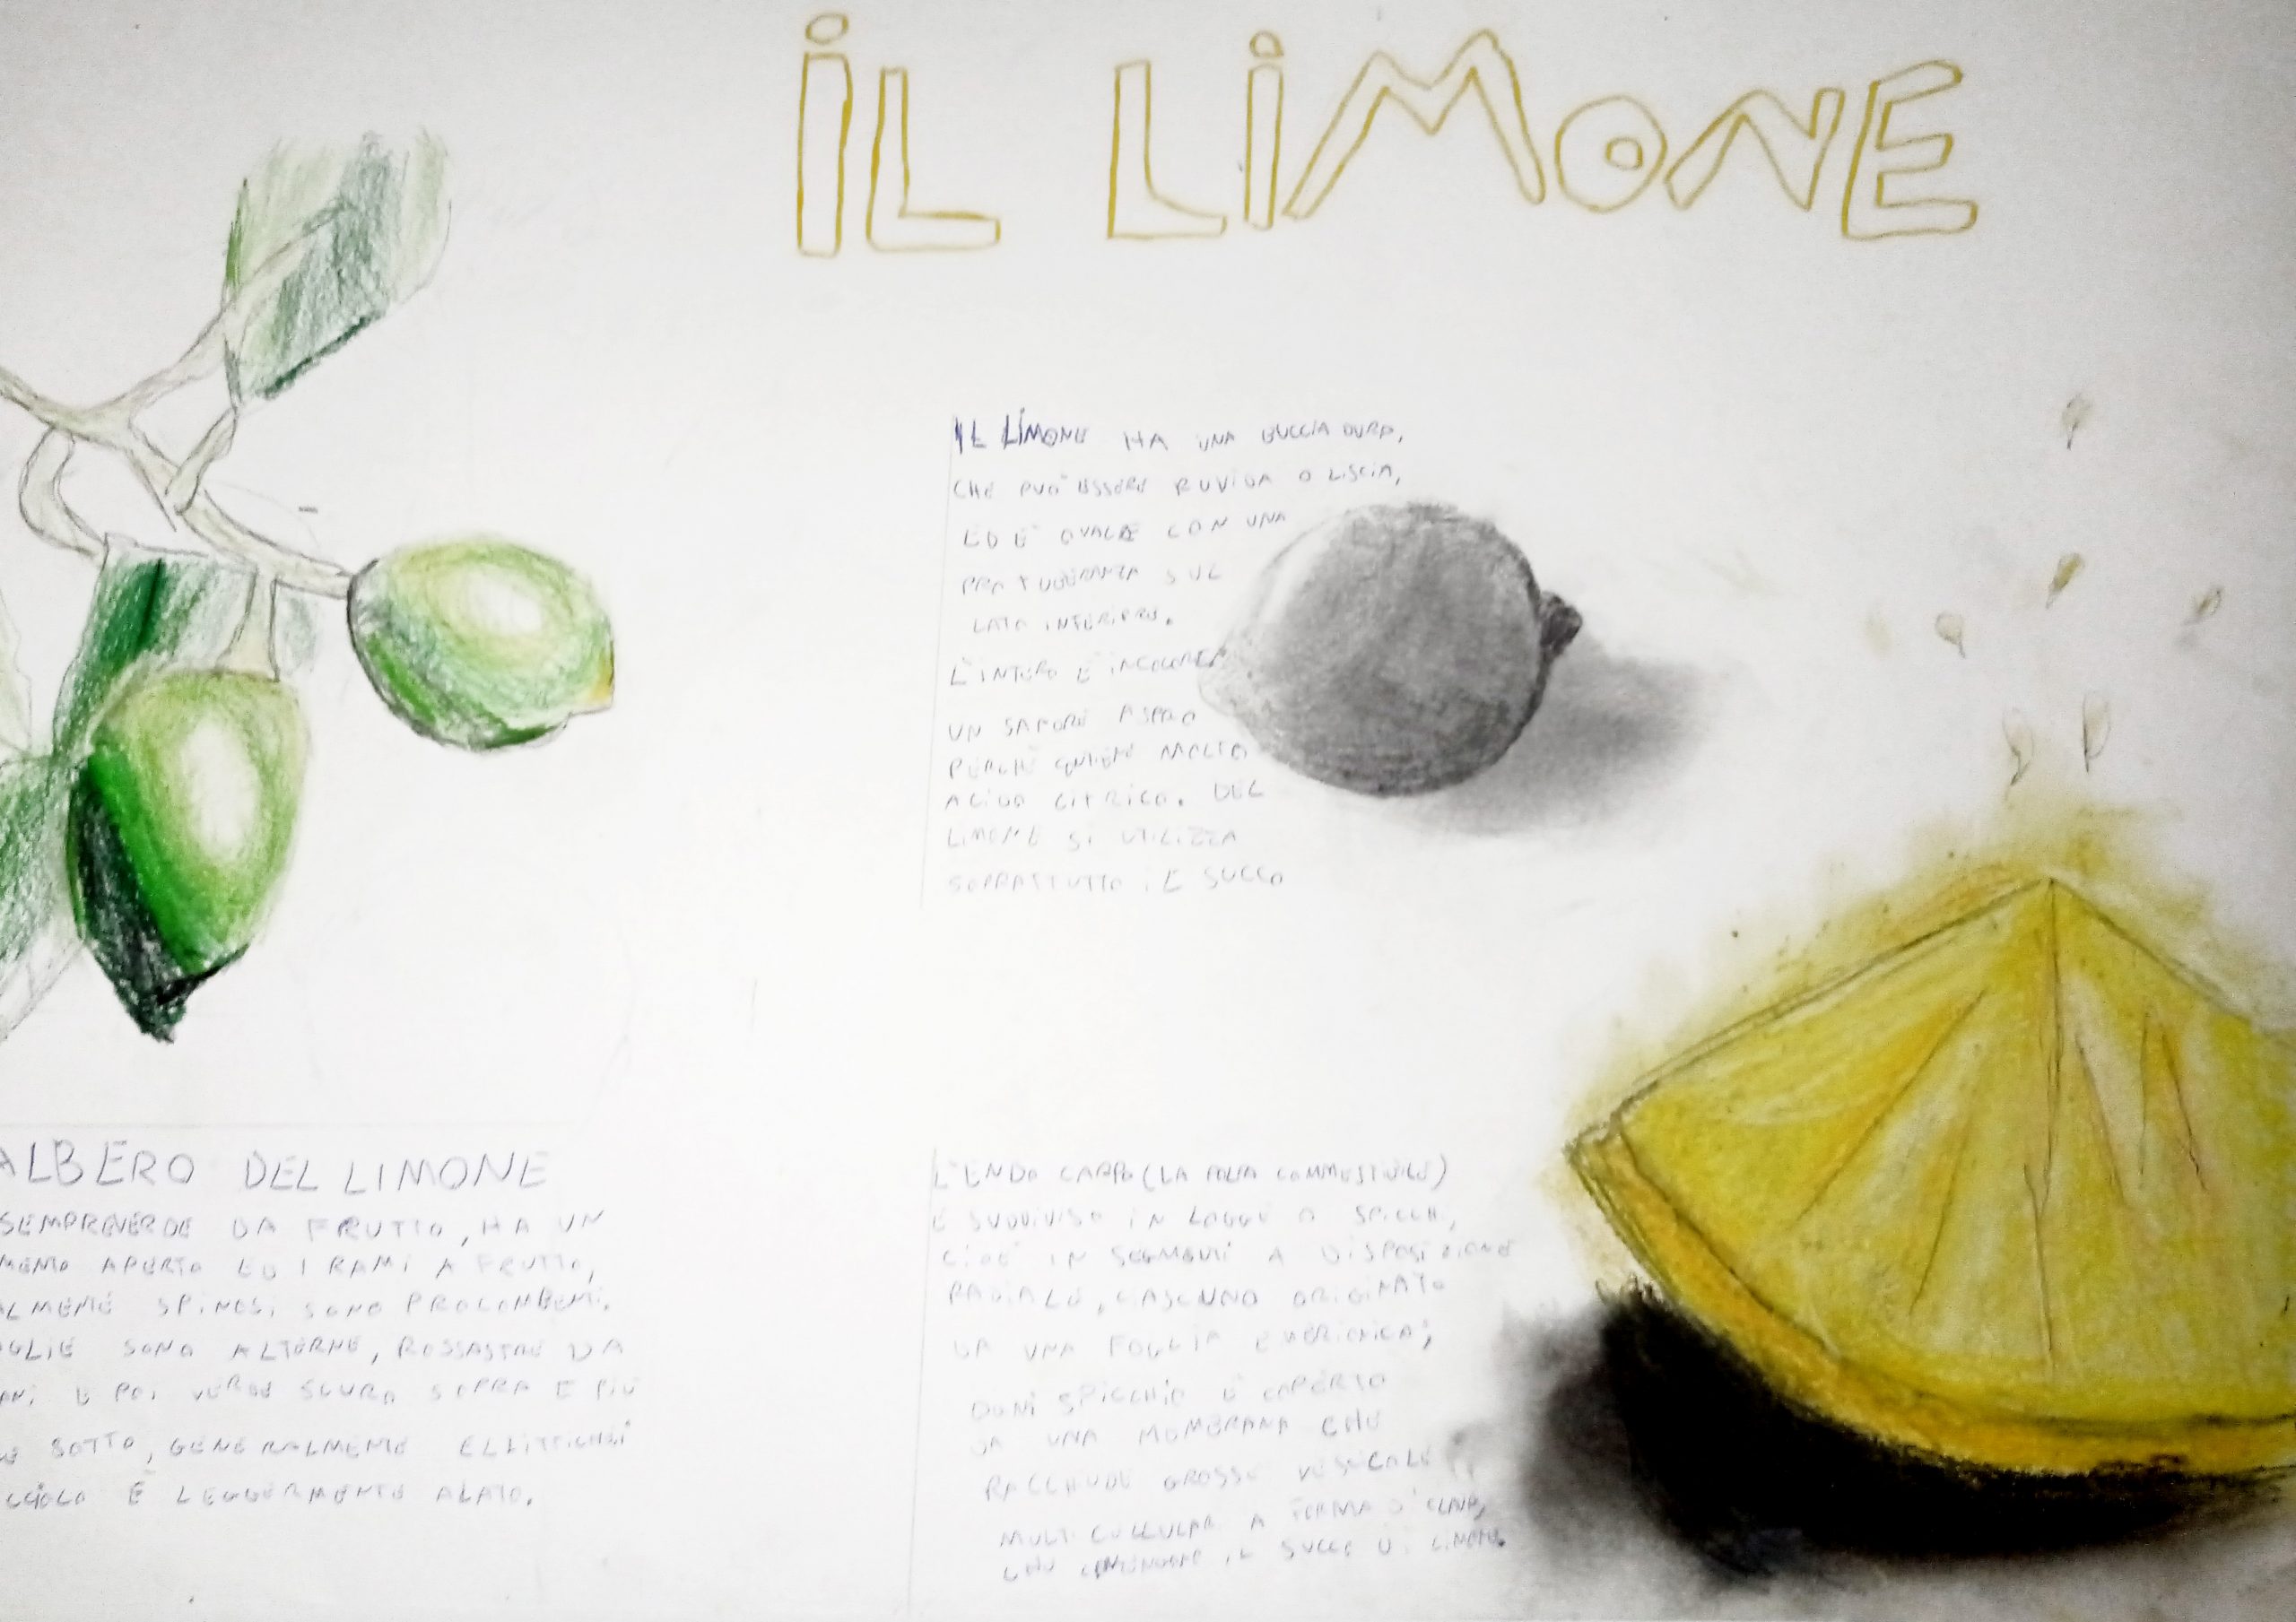 IL LIMONE
IL LIMONE HA UNA BUCCIA DURA,
CHE PUO' ESSERE RUVIDA O LISCIA,
ED E' OVALE CON UNA
PROTUBERANZA SUL
LATO INFERIORE.
L'INTERO E' INCOLORE
UN SAPORE ASPRO
PERCHE' CONTIENE MOLTO
ACIDO CITRICO. DEL
LIMONE SI UTILIZZA
SOPRATTUTTO IL SUCCO
ALBERO DEL LIMONE
SEMPREVERDE DA FRUTTO, HA UN
MENTO APERTO ED I RAMI A FRUTTO,
ALMENTE SPINOSI SONO PROCOMBENTI.
OGLIE SONO ALTERNE, ROSSASTRE DA
ANI E POI VERDE SCURO SOPRA E PIÙ
SOTTO, GENERALMENTE ELLITTICHE
CCIOLO È LEGGERMENTE ALATO.
L'ENDO CARPO (LA COMMESTIBILE)
E' SUDDIVISO IN LOGGE O SPICCHI,
CIOE' IN SEGMENTI A DISPOSIZIONE
RADIALE, CIASCUNO ORIGINATO
DA UNA FOGLIA
OGNI SPICCHIO E' COPERTO
DA UNA MEMBRANA CHE
RACCHIUDE GROSSE VESCICOLE
MULTICELLULAR A FORMA D'CLAVA,
CHE CONTENGONO IL SUCCO DI LIMONE.